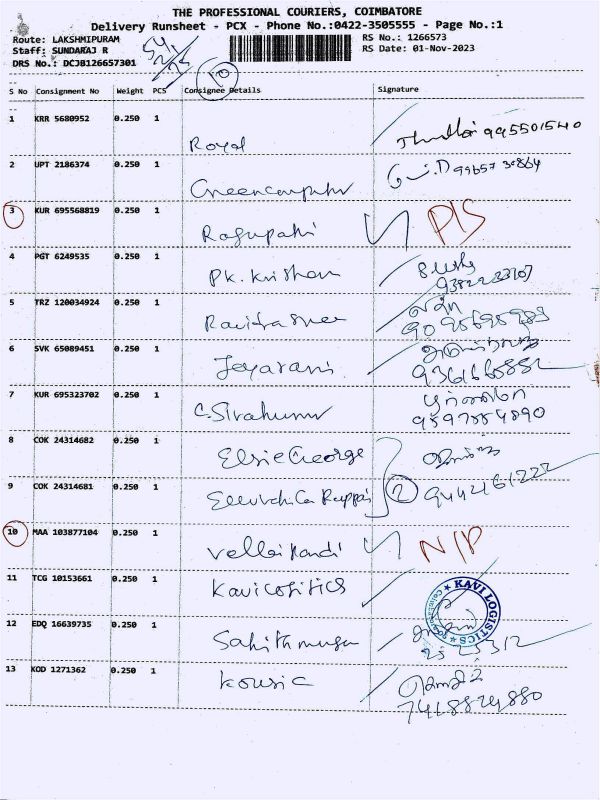 THE PROFESSIONAL COURIERS, COIMBATORE
Delivery Runsheet - PCX - Phone No.:0422-3505555 - Page No.:1
Route: LAKSHMIPURAM
Staff: SUNDARAJ R
DRS No.: DCJB126657301
RS No.: 1266573
RS Date: 01-Nov-2023
10
S No Consignment No Weight PCS Consignee Details Signature
1 KRR 5680952 0.250 1
Royal 995501540
2 UPT 2186374 0.250 1
Greencomputer
3 KUR 695568819 0.250 1
Ragupathi
4 PGT 6249535 0.250 1
PK. Krishan
5 TRZ 120034924 0.250 1
6 SVK 65089451 0.250 1
Jeyarani
7 KUR 695323702 0.250 1
C. Sivakumar
8 COK 24314682 0.250 1
Elsie George
9 COK 24314681 0.250 1
2 9442161222
10 MAA 103877104 0.250 1
Vellaipandi N/P
11 TCG 10153661 0.250 1
Kavicogitics
KAVI LOGISTICS
12 EDQ 16639735 0.250 1
13 KOD 1271362 0.250 1
Kousic
7418824880